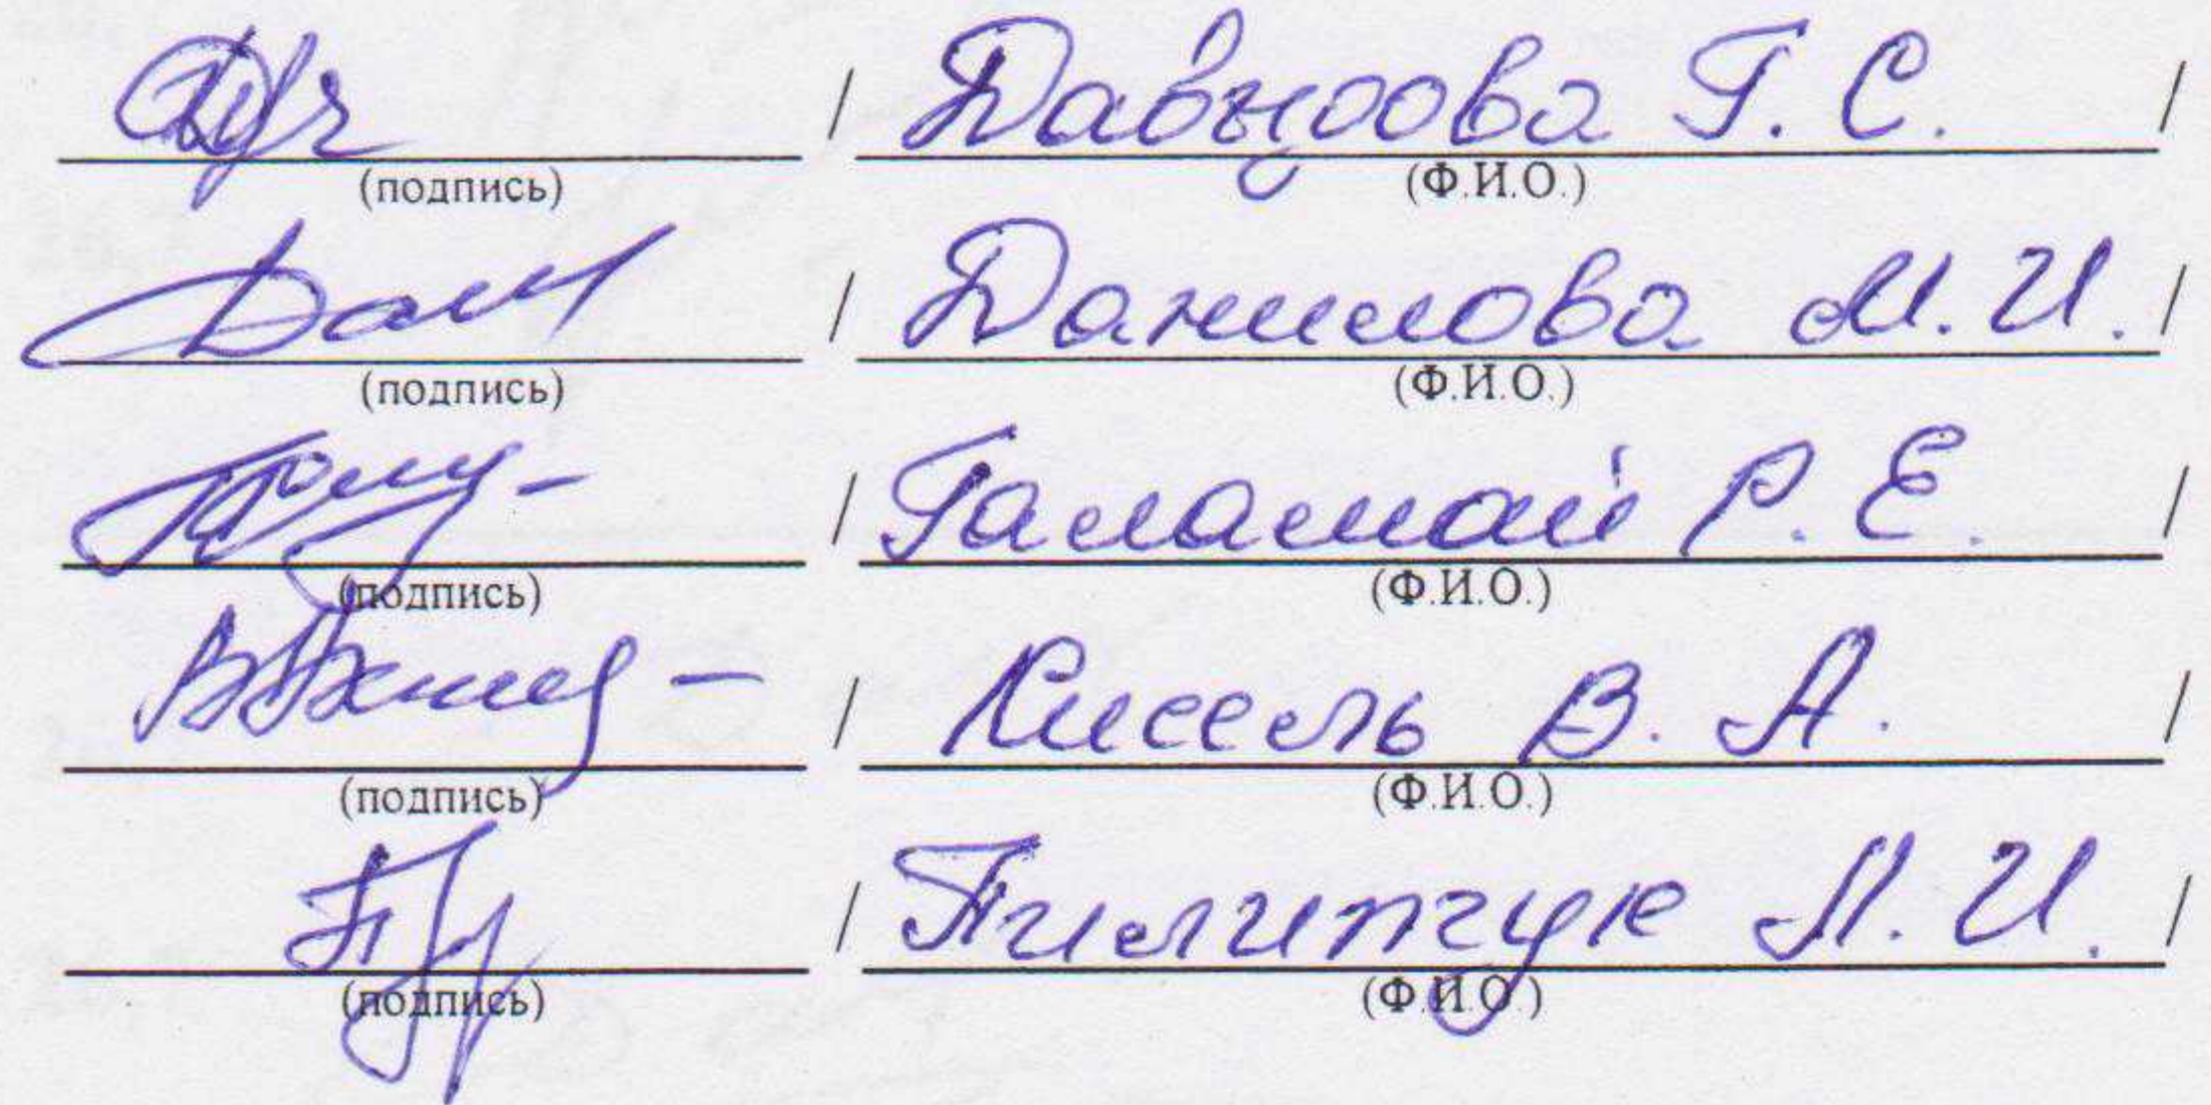 / Давыдова Г. С. /
(подпись) (Ф.И.О.)
/ Данилова М. И. /
(подпись) (Ф.И.О.)
/ Галамай Р. Е. /
(подпись) (Ф.И.О.)
/ Кисель В. А. /
(подпись) (Ф.И.О.)
/ Пилипчук Л. И. /
(подпись) (Ф.И.О.)